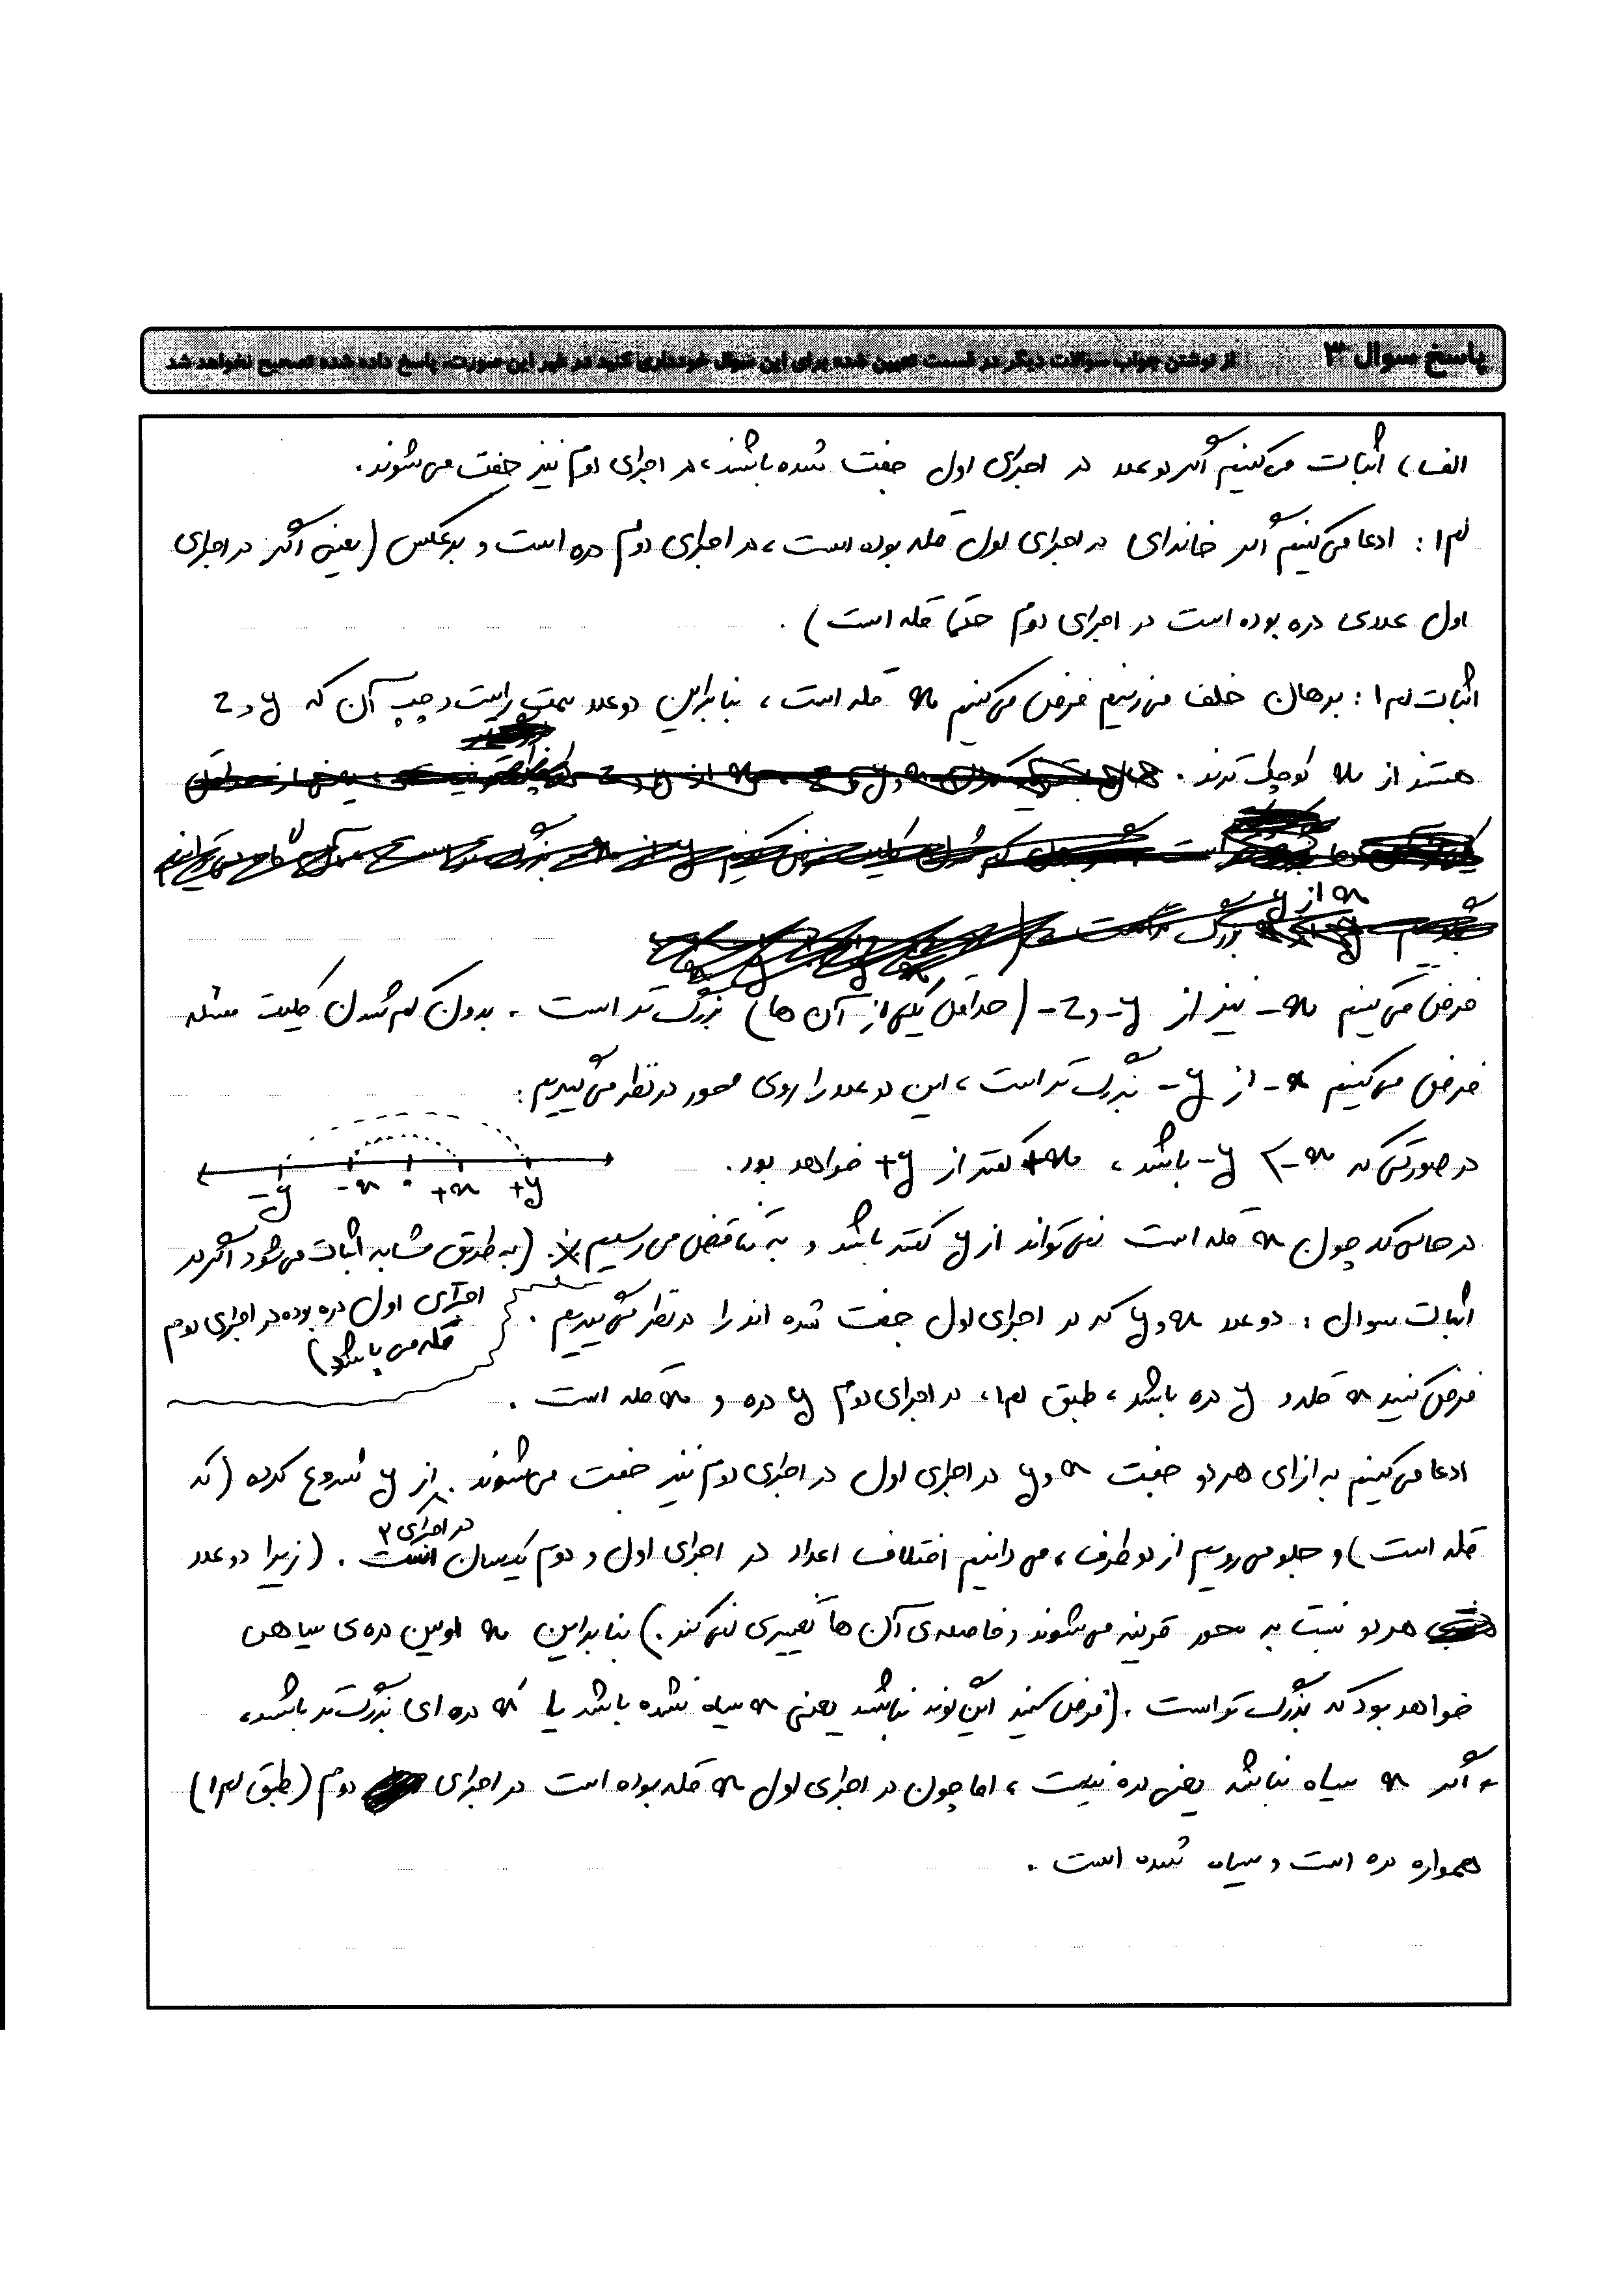 پاسخ سوال ۳
از نوشتن جواب سوالات دیگر در قسمت تعیین شده برای این سوال خودداری کنید در غیر این صورت، پاسخ داده شده تصحیح نخواهد شد
الف) اثبات می‌کنیم اگر دو عدد در اجرای اول جفت شده باشند، در اجرای دوم نیز جفت می‌شوند.
لم۱: ادعا می‌کنیم اگر خانه‌ای در اجرای اول قله بوده است، در اجرای دوم دره است و برعکس (یعنی اگر در اجرای
اول عددی دره بوده است در اجرای دوم حتما قله است).
اثبات لم۱: برهان خلف می‌زنیم فرض می‌کنیم x قله است، بنابراین دو عدد سمت راست و چپ آن که y و z
هستند از x کوچک ترند.
x از y
فرض می‌کنیم -x نیز از -y و -z (حداقل یکی از آن ها) بزرگ تر است. بدون کم شدن کلیت مسئله
فرض می‌کنیم -x از -y بزرگ تر است، این دو عدد را روی محور در نظر می‌گیریم:
در صورتی که -x > -y باشد، +x کمتر از +y خواهد بود.
-y -x 0 +x +y
در حالی که چون x قله است نمی‌تواند از y کمتر باشد و به تناقض می‌رسیم ※. (به طریق مشابه اثبات می‌شود اگر در
اجرای اول دره بوده در اجرای دوم
قله می باشد)
اثبات سوال: دو عدد x و y که در اجرای اول جفت شده اند را در نظر می‌گیریم.
فرض کنید x قله و y دره باشد، طبق لم۱، در اجرای دوم y دره و x قله است.
ادعا می‌کنیم به ازای هر دو جفت x و y در اجرای اول در اجرای دوم نیز جفت می‌شوند. از y شروع کرده (که
در اجرای ۲
قله است) و جلو می‌رویم از دو طرف، می دانیم اختلاف اعداد در اجرای اول و دوم یکسان است. (زیرا دو عدد
هر دو نسبت به محور قرینه می‌شوند و فاصله‌ی آن ها تغییری نمی‌کند.) بنابراین x اولین دره‌ی سیاهی
خواهد بود که بزرگ تر است. (فرض کنید این گونه نباشد یعنی x سیاه نشده باشد یا x دره ای بزرگ تر باشد،
اگر x سیاه نباشد یعنی دره نیست، اما چون در اجرای اول x قله بوده است در اجرای دوم (طبق لم۱)
همواره دره است و سیاه شده است.